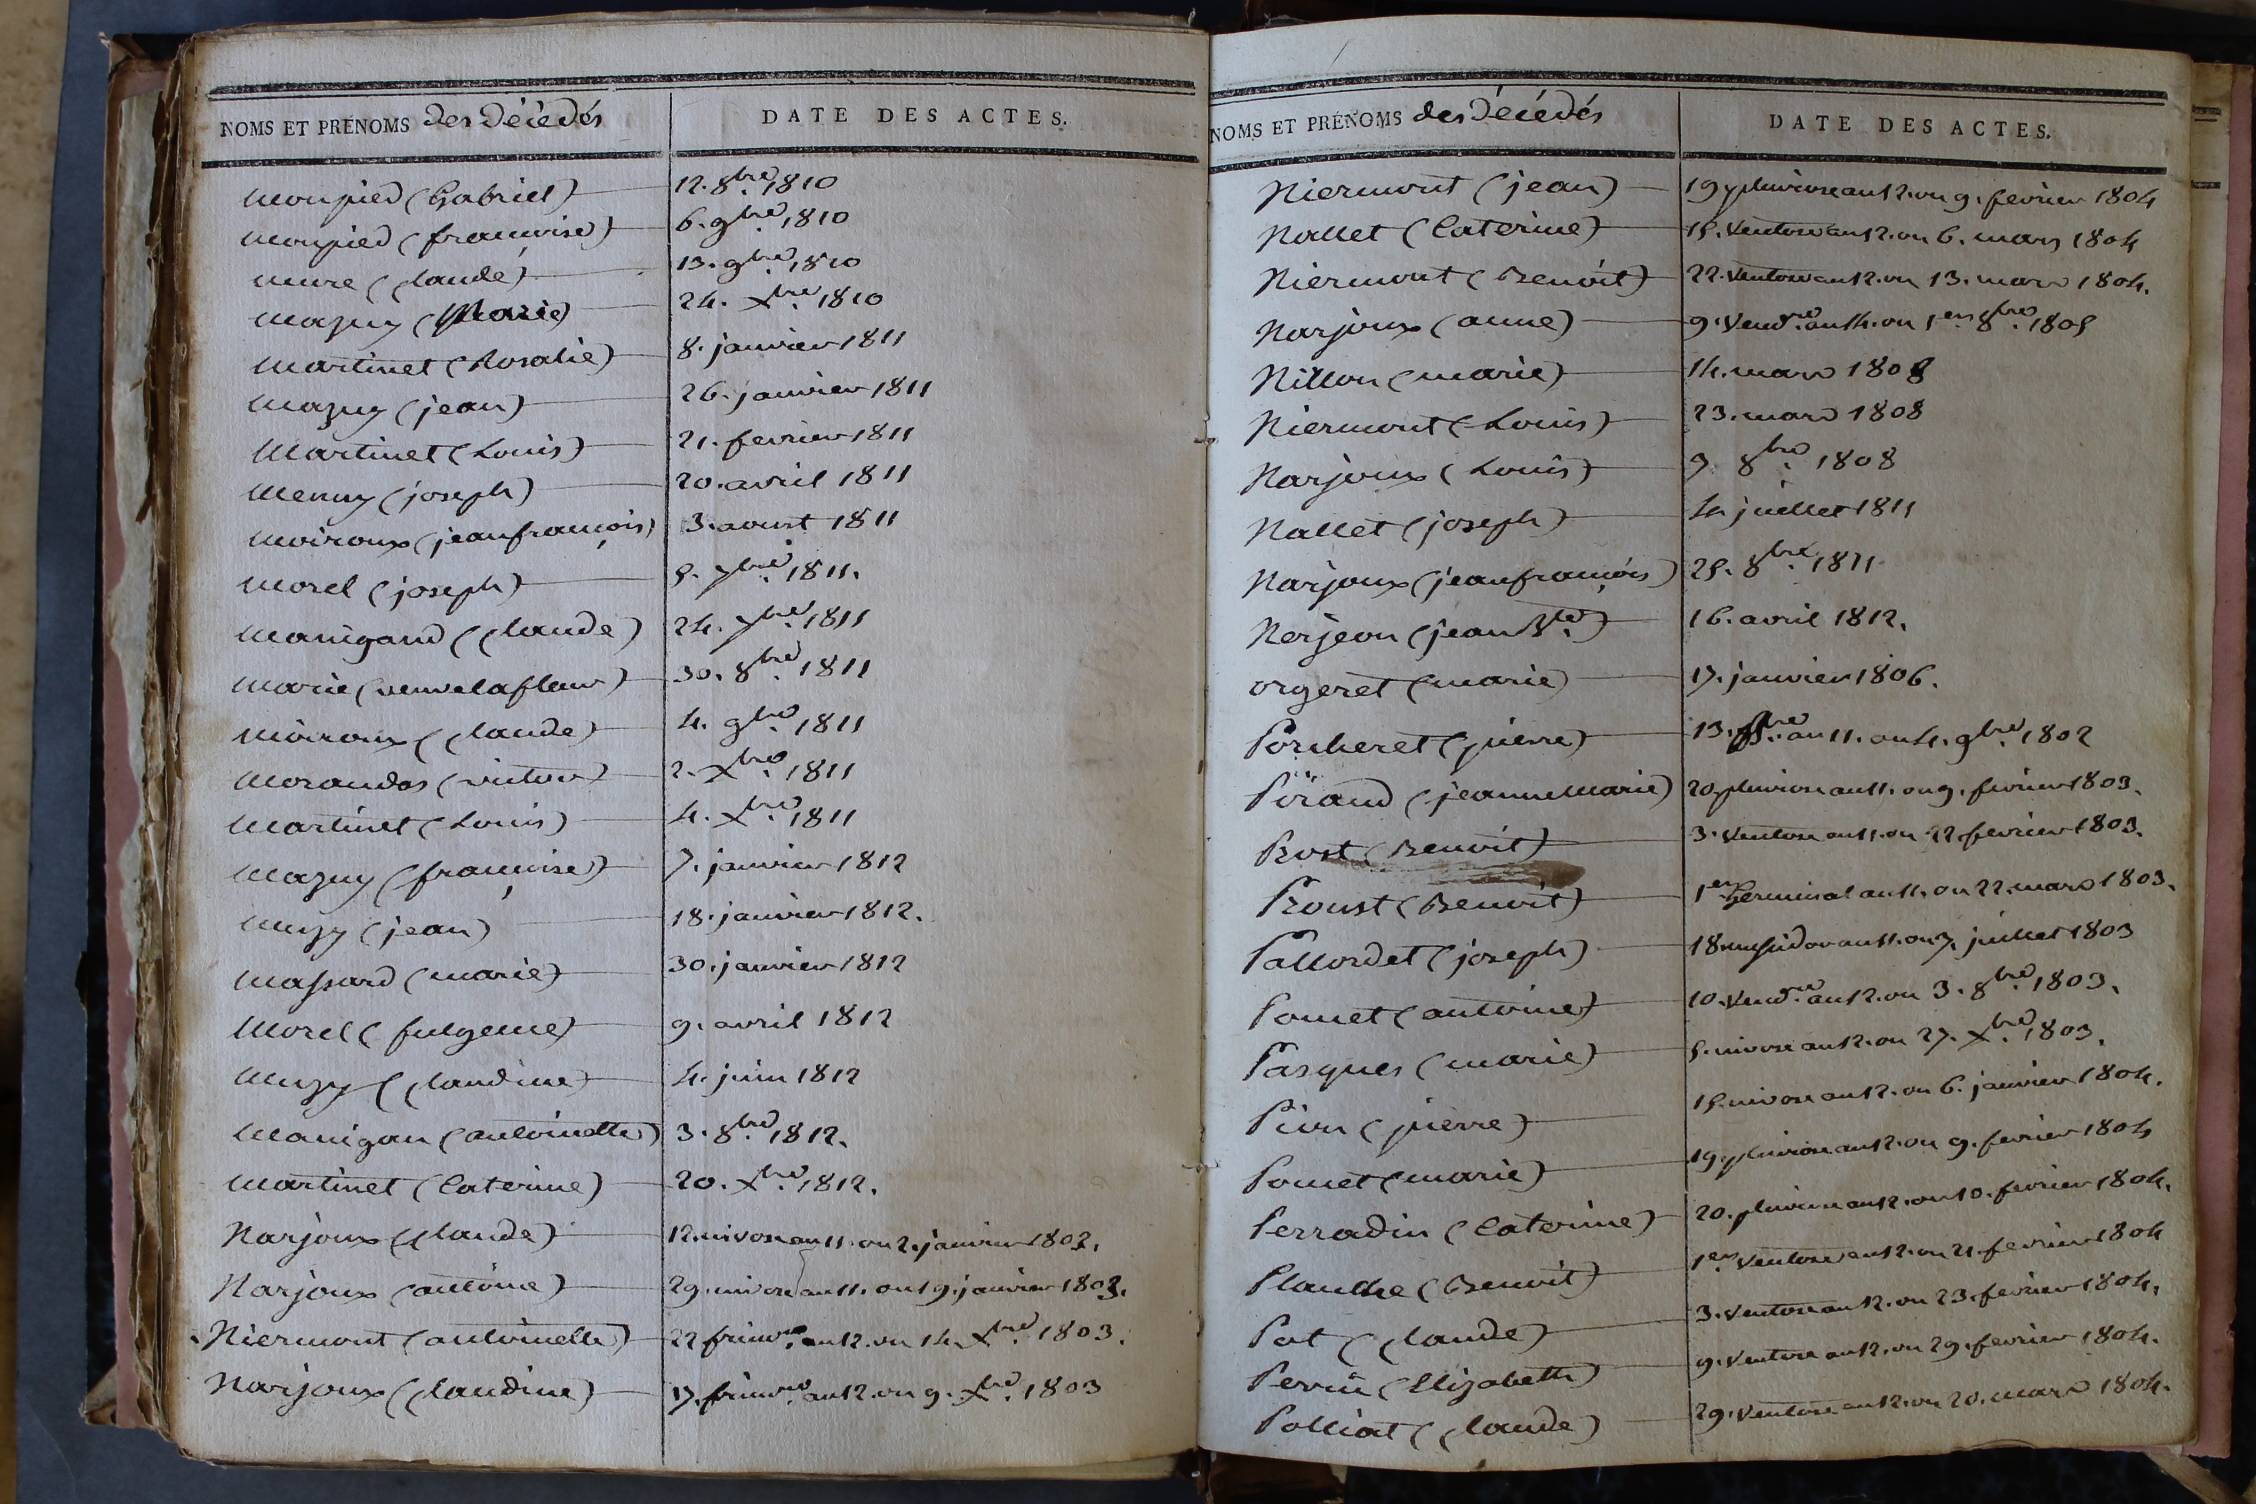 NOMS ET PRÉNOMS des décédés DATE DES ACTES.
Monpied (Gabriel) 12. 8bre. 1810
Monpied (françoise) 6. 9bre. 1810
Mure (Claude) 13. 9bre. 1810
Mazuy (Marie) 24. Xbre. 1810
Martinet (Rosalie) 8. janvier 1811
Mazuy (jean) 26. janvier 1811
Martinet (Louis) 21. fevrier 1811
Menuy (joseph) 20. avril 1811
Moiroux (jean françois) 3. aoust 1811
Morel (joseph) 5. 7bre. 1811.
Manigand (Claude) 24. 7bre. 1811
Marie (veuve lafleur) 30. 8bre. 1811
Moiroux (Claude) 4. 9bre. 1811
Morandas (victor) 2. Xbre. 1811
Martinet (Louis) 4. Xbre. 1811
Mazuy (françoise) 7. janvier 1812
Muzy (jean) 18. janvier 1812.
Massard (marie) 30. janvier 1812
Morel (fulgence) 9. avril 1812
Muzy (Claudine) 4. juin 1812
Manigan (antoinette) 3. 8bre. 1812.
Martinet (Caterine) 20. Xbre. 1812.
Narjoux (Claude) 12. nivose an 11. ou 2. janvier 1803.
Narjoux (antoine) 29. nivose an 11. ou 19. janvier 1803.
Niermont (antoinette) 22 frimre. an 12. ou 14. Xbre. 1803.
Narjoux (Claudine) 17. frimre. an 12. ou 9. Xbre. 1803
NOMS ET PRÉNOMS des décédés DATE DES ACTES.
Niermont (jean) 19 pluviose an 12. ou 9. fevrier 1804
Nallet (Caterine) 15. ventose an 12. ou 6. mars 1804
Niermont (Benoit) 22. ventose an 12. ou 13. mars 1804.
Narjoux (anne) 9. Vendre. an 14. ou 1er. 8bre. 1805
Nillon (marie) 14. mars 1808
Niermont (Louis) 23. mars 1808
Narjoux (Louis) 9. 8bre. 1808
Nallet (joseph) 4. juillet 1811
Narjoux (jean françois) 25. 8bre. 1811
Nerjeon (jean Bte.) 16. avril 1812.
orgeret (marie) 17. janvier 1806.
Porcheret (pierre) 13. Bre. an 11. ou 4. 9bre. 1802
Pöraud (jeanne Marie) 20. pluviose an 11. ou 9. fevrier 1803.
Prost (Benoit) 3. ventose an 11. ou 22. fevrier 1803.
Proust (Benoit) 1er Germinal an 11. ou 22. mars 1803.
Pallordet (joseph) 18 messidor an 11. ou 7. juillet 1803
Pomet (antoine) 10. Vendre. an 12. ou 3. 8bre. 1803.
Pasques (marie) 5. nivose an 12. ou 27. Xbre. 1803.
(pierre) 15. nivose an 12. ou 6. janvier 1804.
Pomet (marie) 19. pluviose an 12. ou 9. fevrier 1804
Perradin (Caterine) 20. pluviose an 12. ou 10. fevrier 1804.
Planche (Benoit) 1er ventose an 12. ou 21. fevrier 1804
Pat (Claude) 3. ventose an 12. ou 23. fevrier 1804.
Perrin (Elizabeth) 9. ventose an 12. ou 29. fevrier 1804.
Polliat (Claude) 29. ventose an 12. ou 20. mars 1804.